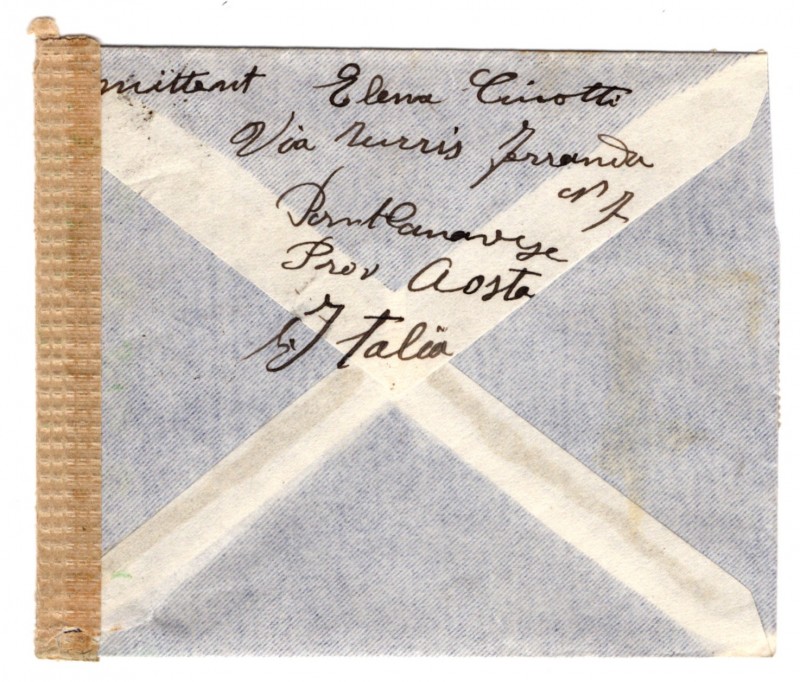 mittent Elena Cirotti
Via Turris Ferranda
N 7
Pont Canavese
Prov Aosta
Italia